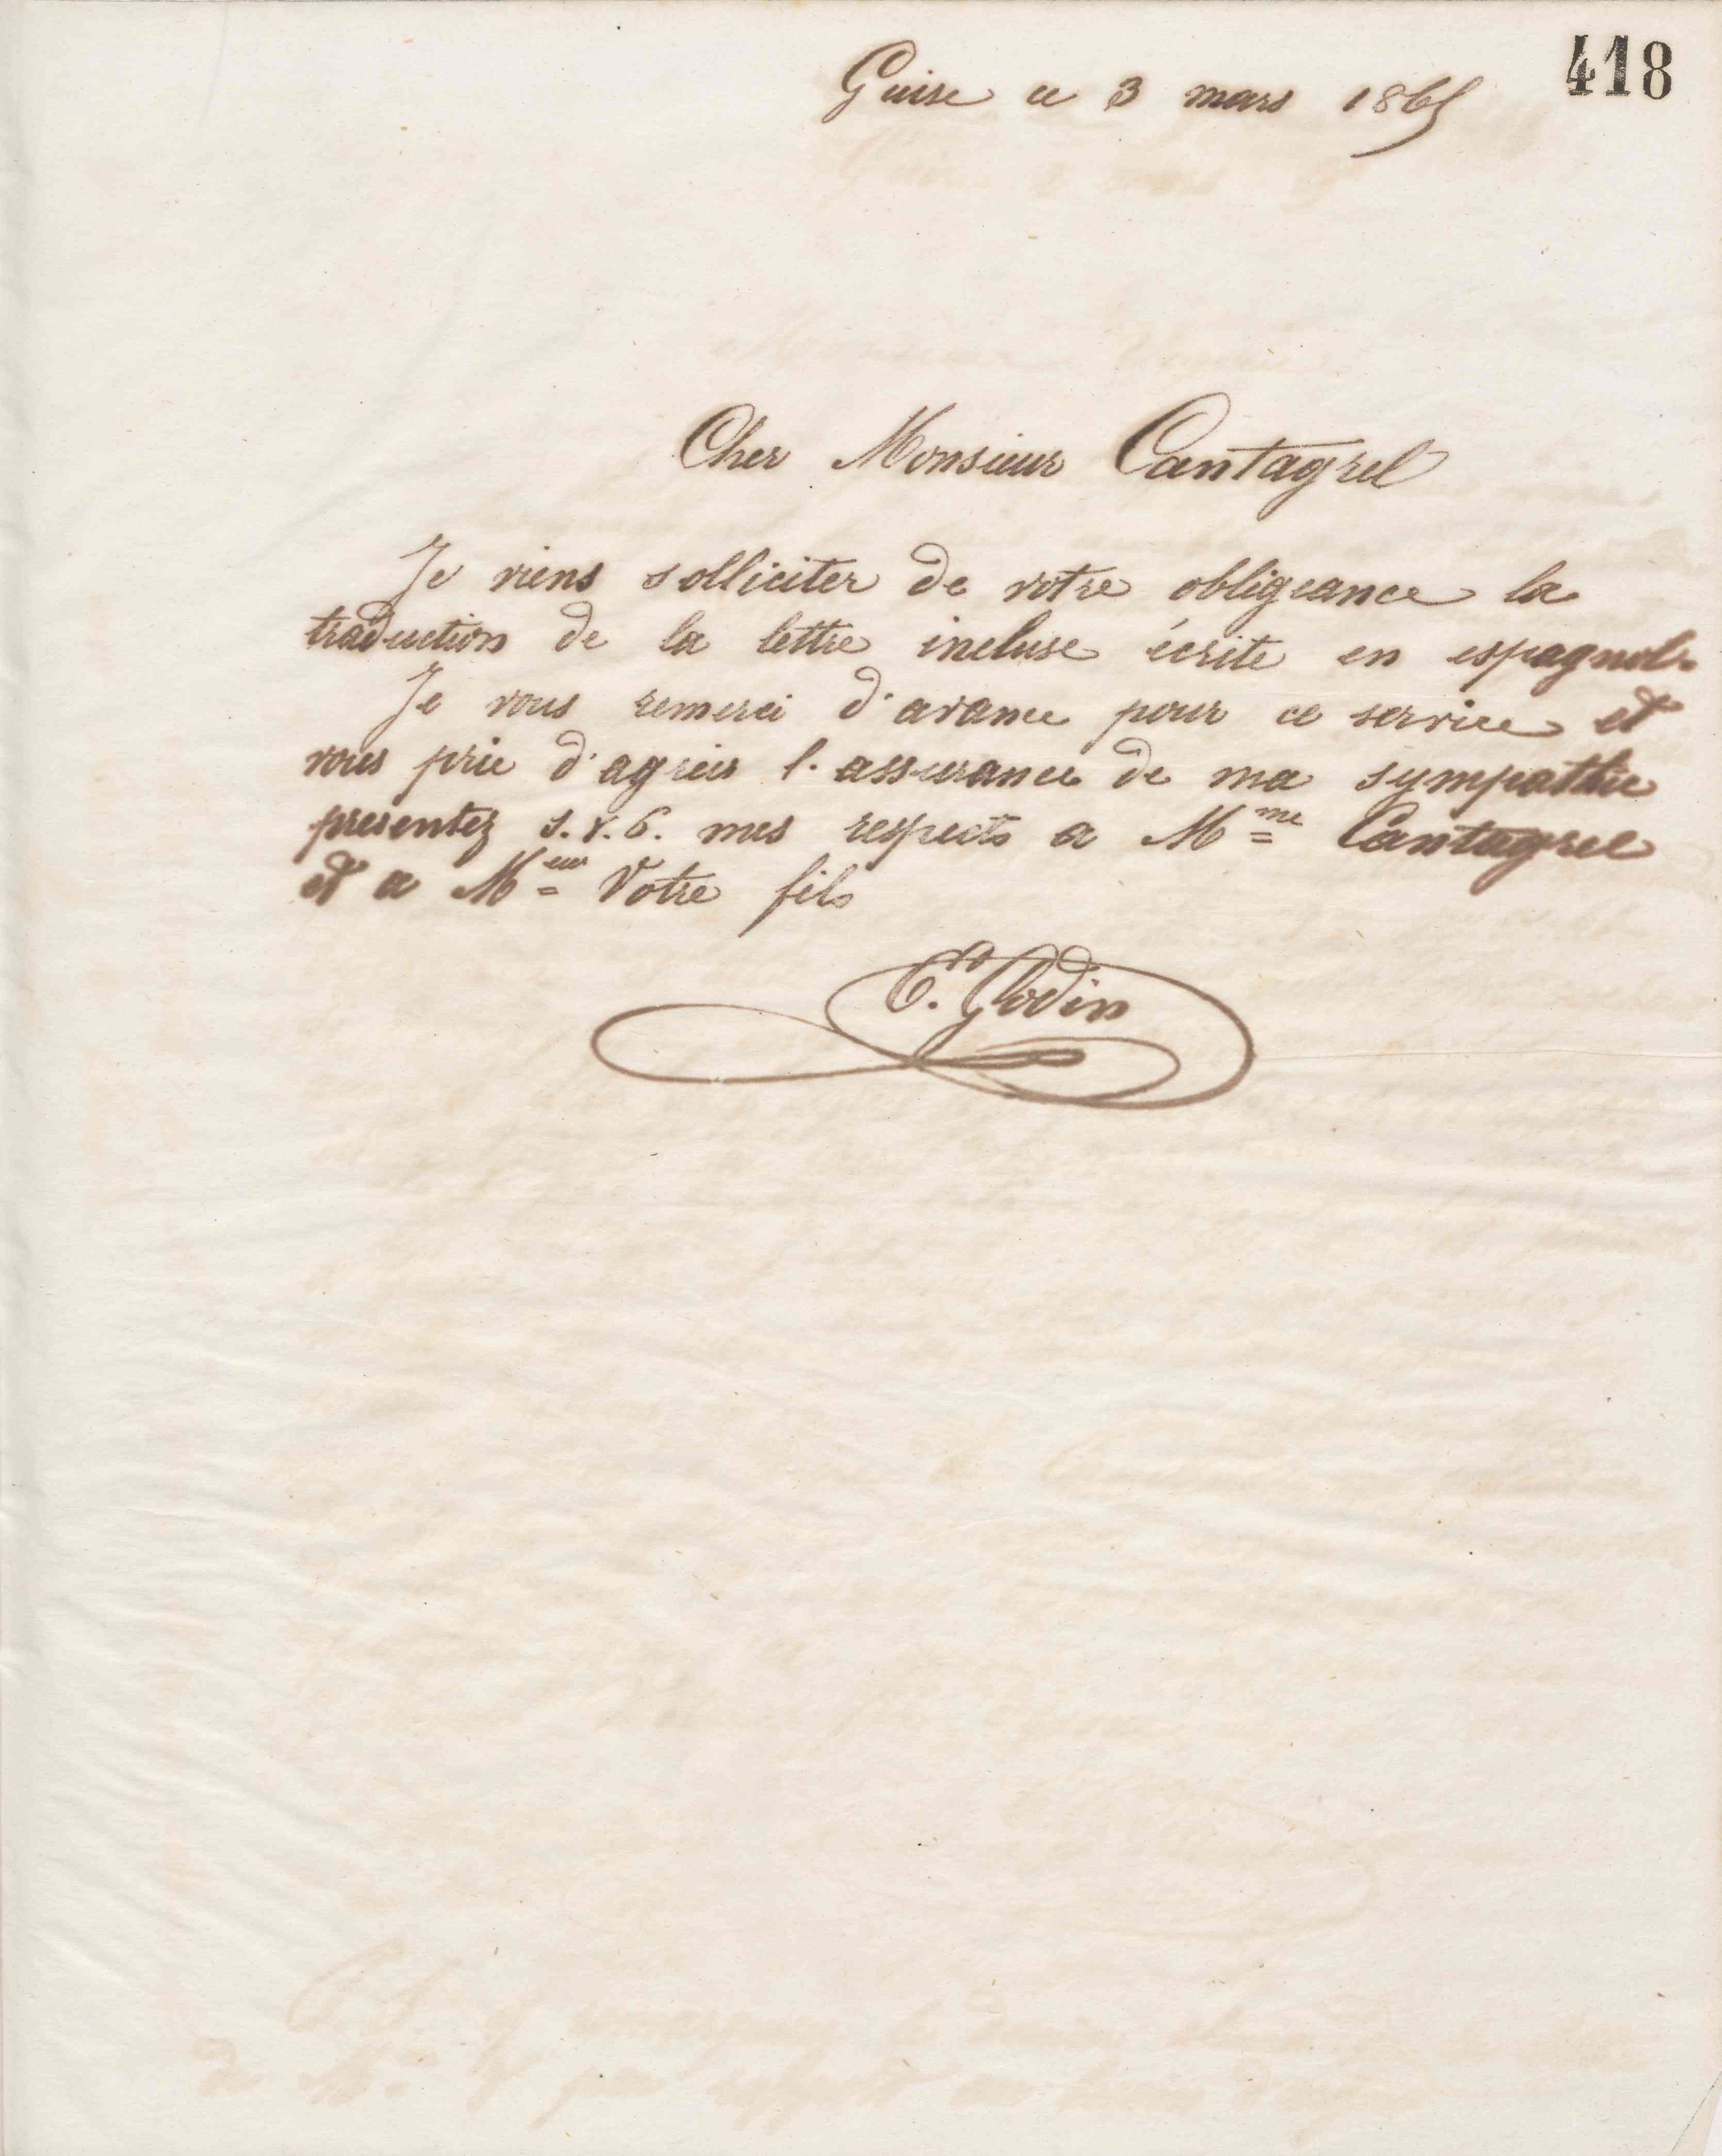 418
Guise ce 3 mars 1865
Cher Monsieur Cantagrel
Je viens solliciter de votre obligeance la
traduction de la lettre incluse écrite en espagnol.
Je vous remerci d'avance pour ce service et
vous prie d'agréer l'assurance de ma sympathie
presentez s.v.p. mes respects a Mme Cantagrel
et a Meur Votre fils
E. Godin